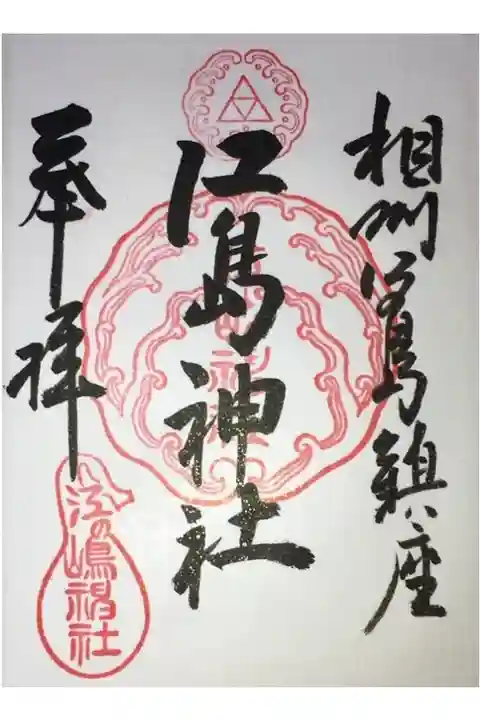 相州宮島鎮座
江島神社
奉拝
江の嶋神社